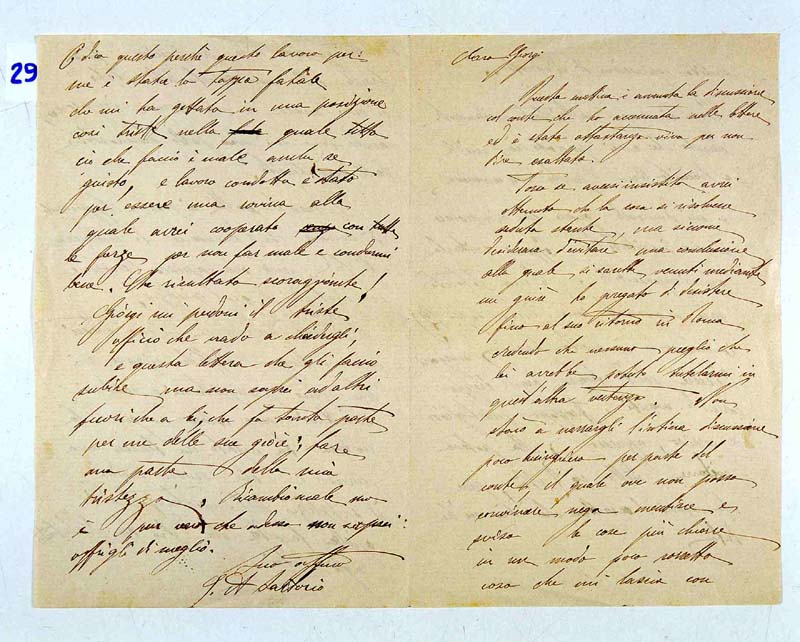 29
Caro Giorgi
Questa mattina è avvenuta la discussione
col conte che ho accennata nelle lettere
ed è stata abbastanza viva per non
dire esaltata.
Forse se avessi insistito avrei
ottenuto che la cosa si risolvesse
seduta stante, ma siccome
desiderava d'evitare una conclusione
alla quale si sarebbe venuti mediante
un giurì ho pregato di desistere
fino al suo ritorno in Roma
credendo che nessuno meglio che
lei avrebbe potuto tutelarmi in
quest'altra vertenza. Non
starò a narrargli l'intima discussione
poco lusinghiera per parte del
conte, il quale ove non possa
convincere nega mentisce e
svisa le cose più chiare
in un modo poco corretto
cosa che mi lascia con
E dico questo perchè questo lavoro per
me è stata la tappa fatale
che mi ha gettata in una posizione
così triste nella quale tutto
ciò che faccio è male anche se
giusto, e lavoro condotta è stato
per essere una rovina alla
quale avrei cooperato con tutte
le forze per non far male e condurmi
bene. Che risultato scoraggiante!
Giorgi mi perdoni il triste
officio che vado a chiedergli,
e questa lettera che gli faccio
subire ma non saprei ad altri
fuori che a lei, che fa tanta parte
per me delle sue gioie, fare
una parte della mia
tristezza. Ricambio male ma
è pur vero che adesso non saprei
offrirgli di meglio.
Suo affmo
G. A Sartorio